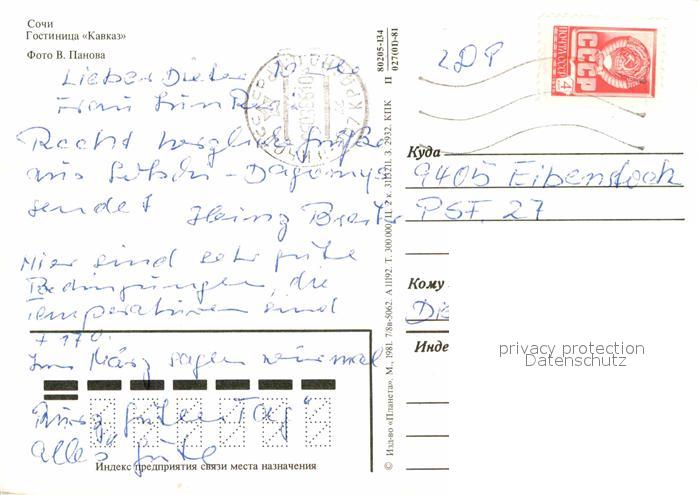 Сочи
Гостиница «Кавказ»
Фото В. Панова
Lieber Dieter
Frau
Recht herzliche Grüße
aus Sotschi - Dagomys
sendet Heinz
Hier sind sehr gute
Bedingungen, die
Temperaturen sind
+ 17°.
Im März sagen wir mal
"Guten Tag"
alles Gute
Индекс предприятия связи места назначения
© Изд-во «Планета», М., 1981. 7/8а-5062. А 11192. Т. 300.000. Ц. 2 к. 3. 2932. КПК
80205-134
027(01)-81 П
ПОЧТА СССР
4
СССР
Куда
9405 Eibenstock
PSF. 27
Кому
Die
Инде
privacy protection
Datenschutz